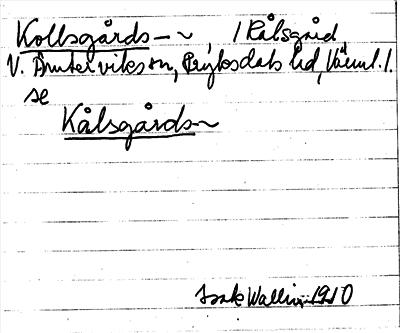 Kollsgårds-~ / Kålsgård,
V. Ämterviks sn, Fryksdals hd, Värml. /.
se
Kålsgårds~
Isak Wallin 1910